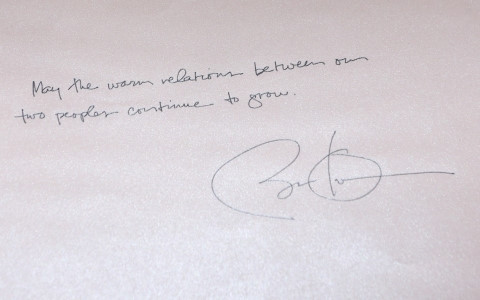 May the warm relations between our
two peoples continue to grow.